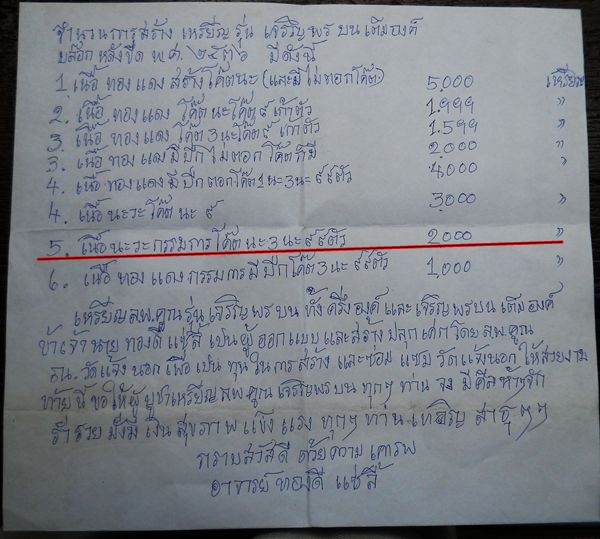 จำนวนการสร้าง เหรียญ รุ่น เจริญพร บน เต็มองค์
บล๊อก หลังขีด พ.ศ. ๒๕๓๖ มีดังนี้
1. เนื้อ ทองแดง สร้างโค๊ตนะ (และมีไม่ตอกโค๊ต) 5,000 เหรียญ
2. เนื้อ ทองแดง โค๊ตนะโค๊ต๙ เก้าตัว 1.999 "
3. เนื้อ ทองแดง โค๊ต 3 นะโค๊ต๙ เก้าตัว 1.599 "
3. เนื้อ ทองแดงมีปีก ไม่ตอก โค๊ตก็มี 2,000 "
4. เนื้อ ทองแดงมีปีกตอกโค๊ต1นะ=3นะ ๙ ๙ตัว 4,000
4. เนื้อนะวะโค๊ต นะ ๙ 3,000 "
5. เนื้อนะวะกรรมการโค๊ต นะ 3 นะ๙ ๙ตัว 2,000 "
6. เนื้อ ทองแดงกรรมการมีปีกโค๊ต 3 นะ ๙ ๙ตัว 1,000 "
เหรียญลพ.คูณรุ่นเจริญพรบน ทั้งครึ่งองค์ และเจริญพรบนเต็มองค์
ข้าเจ้านายทองดี แซ่ลี้ เป็นผู้ออกแบบและสร้างปลุกเศกโดย ลพ.คูณ
ณ.วัดแจ้งนอก เพื่อ เป็น ทุนในการสร้าง และซ่อม แซม วัดแจ้งนอก ให้สวยงาม
ท้ายนี้ ขอให้ผู้ บูชาเหรียญลพ.คูณ เจริญพรบน ทุกๆ ท่าน จง มีศีลห้าๆจัก
ร่ำรวย มั่งมี เงิน สุขภาพแข็ง แรง ทุกๆ ท่าน เทอญ สาธุ ๆๆ
กราบสวัสดี ด้วยความ เคารพ
อาจารย์ ทองดี แซ่ลี้